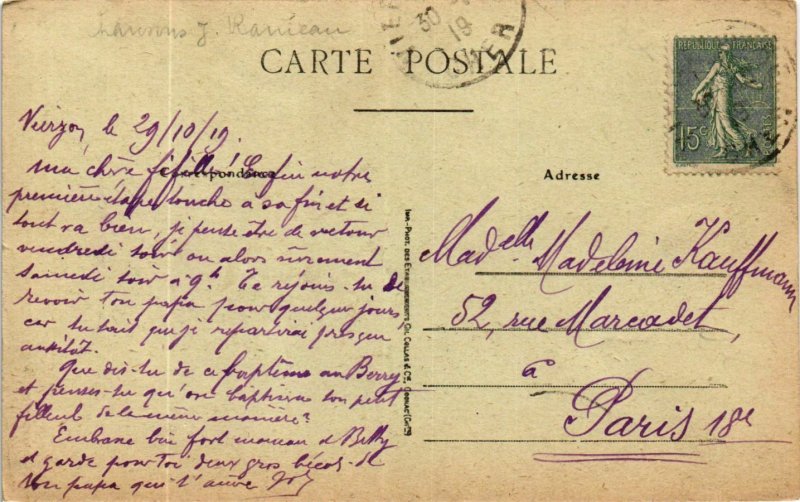 J.
30
19
CARTE POSTALE
RÉPUBLIQUE FRANÇAISE
15c
Vierzon, le 29/10/19.
Ma chère fifille! Enfin notre
Correspondance
première étape touche à sa fin et si
tout va bien, je pense être de retour
vendredi soir ou alors sûrement
samedi soir à 9h. Te réjouis-tu de
revoir ton papa pour quelques jours,
car tu sait que je repartirai presque
aussitôt.
Que dis-tu de ce baptême au Berry
et penses-tu qu'on baptisera ton petit
filleul de la même manière?
Embrasse bien fort maman et Betty
et garde pour toi deux gros bécots de
ton papa qui t'aime
Adresse
Madelle Madeleine Kauffmann
52, rue Marcadet,
à
Paris 18e
IMP.-PHOT. DES ÉTABLISSEMENTS CH. COLLAS & Cie, COGNAC